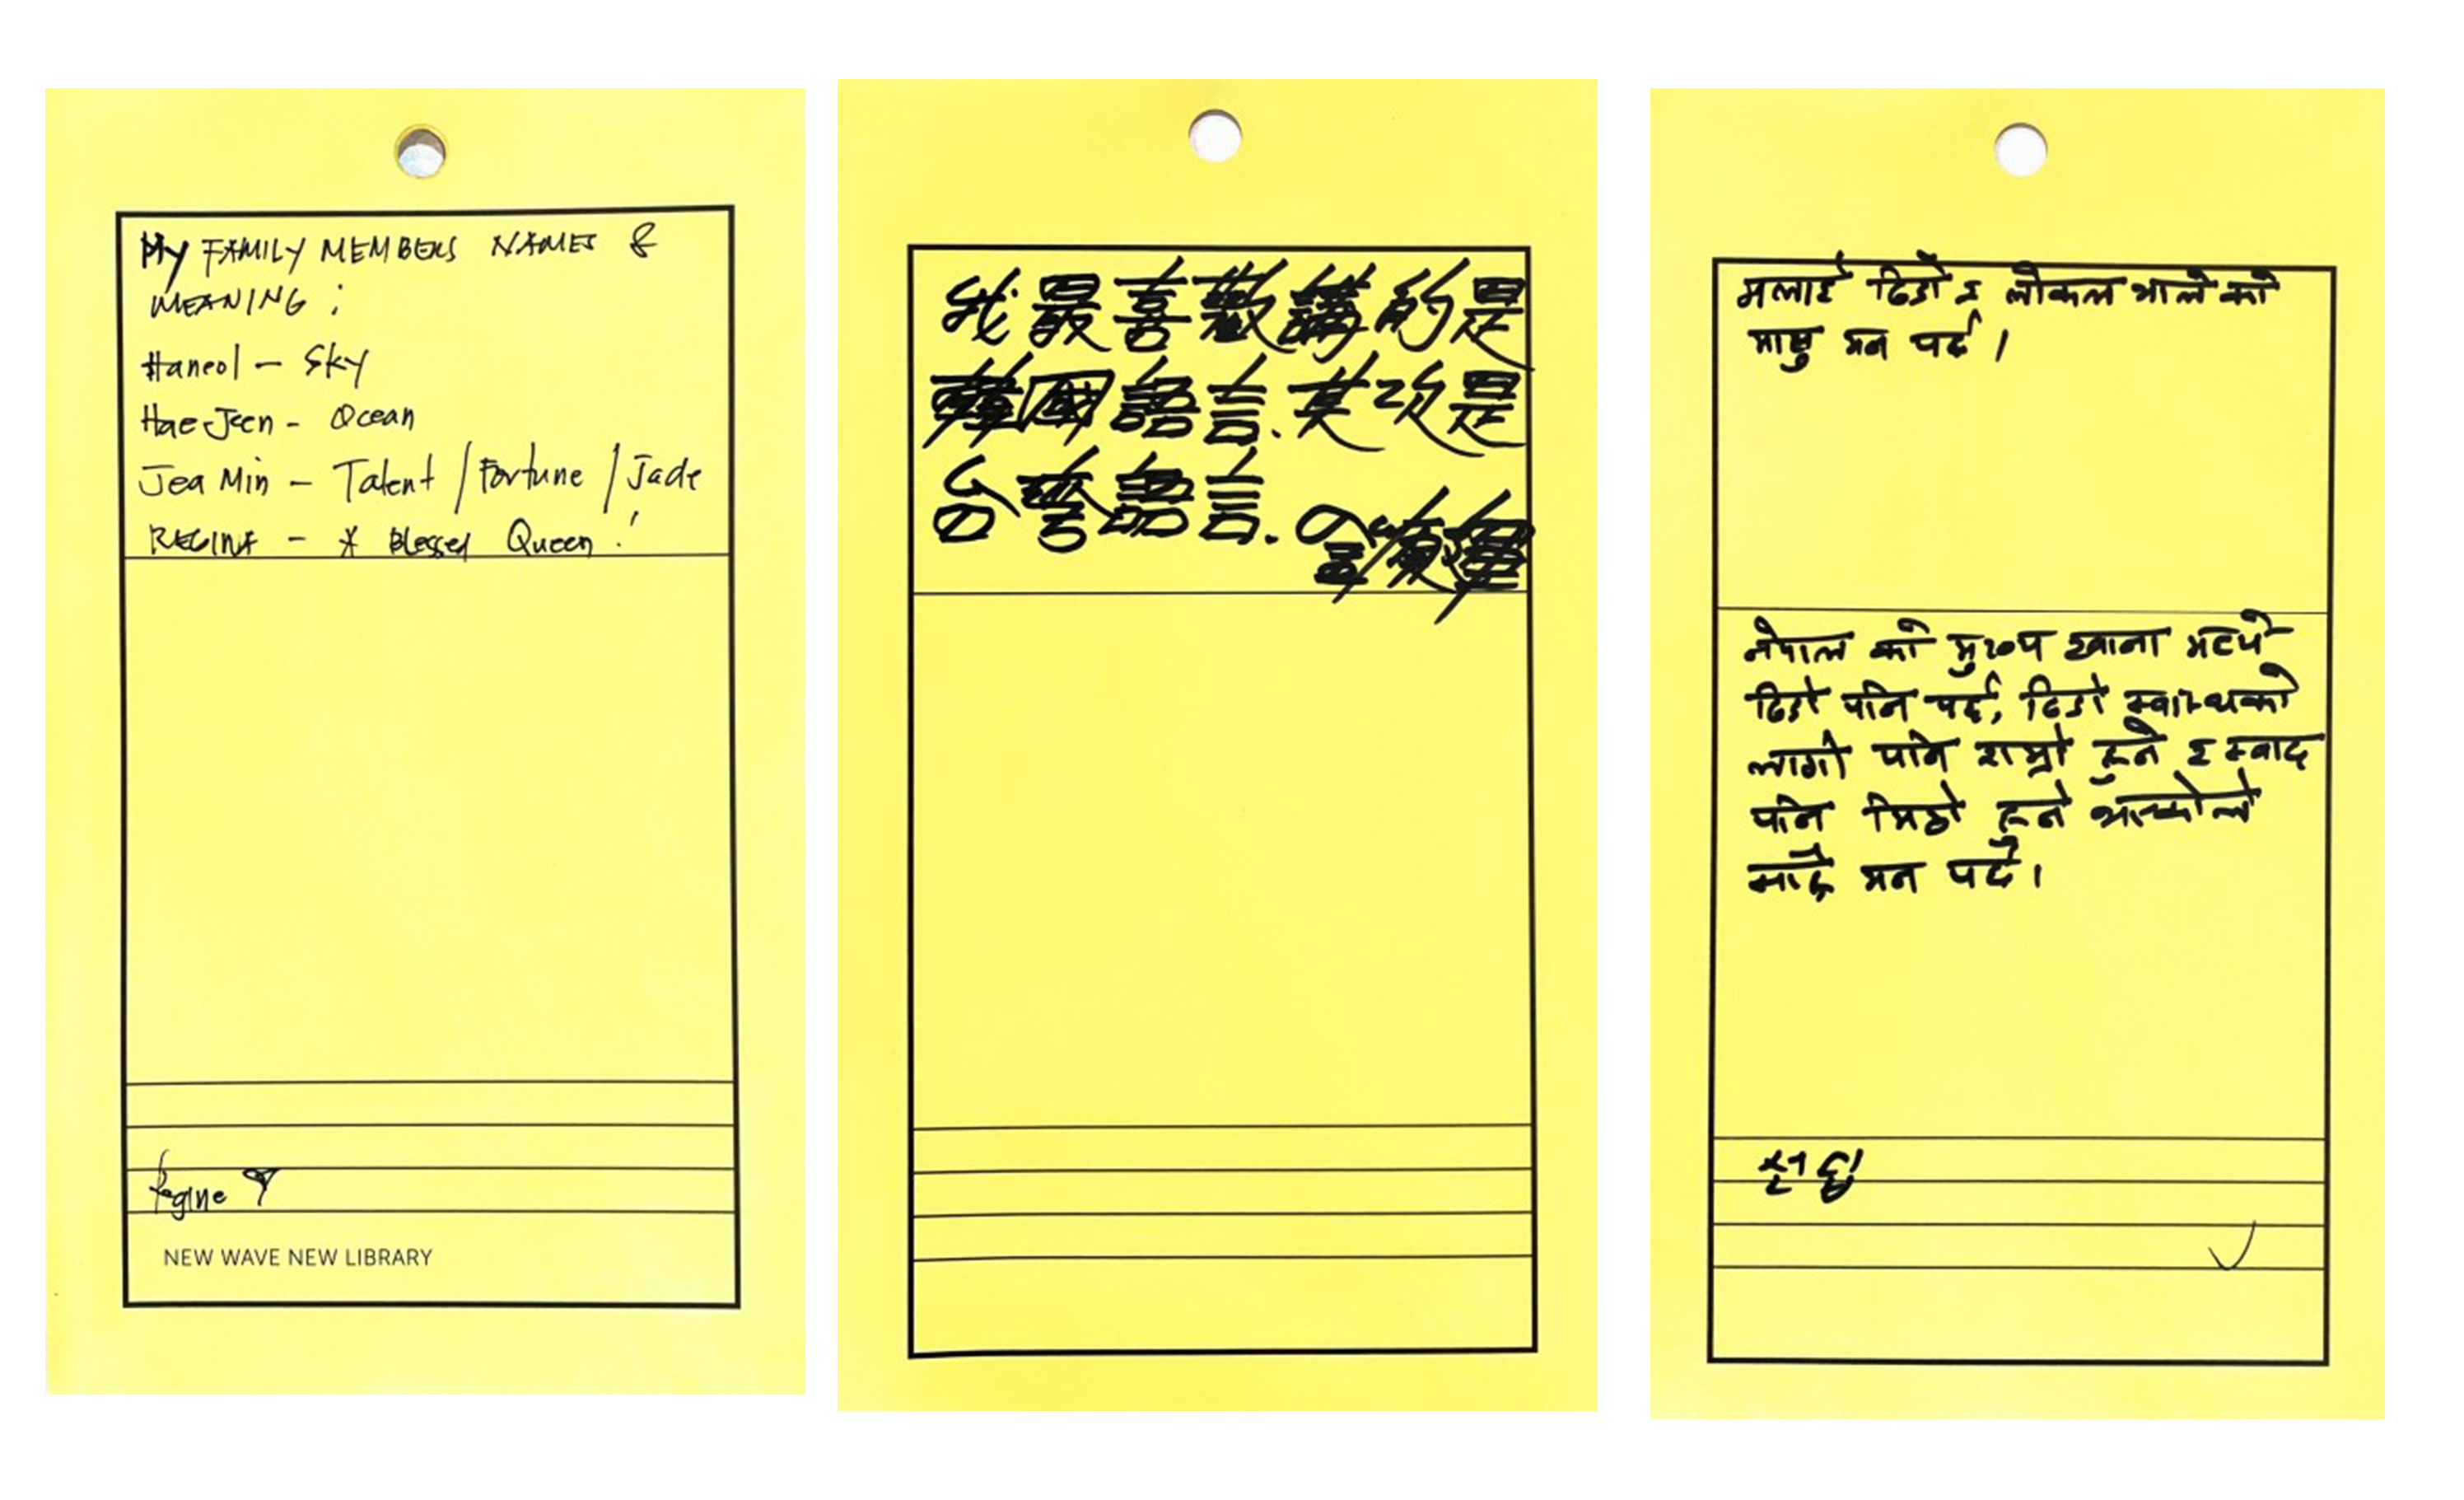 My FAMILY MEMBERS NAMES &
MEANING :
Haneol – Sky
HaeJeen - Ocean
Jea Min – Talent / Fortune / Jade
REGINE – * Blessed Queen !
Regine
NEW WAVE NEW LIBRARY
我最喜歡講的是
韓國語言.其次是
台灣語言.
मलाई ढिडो र लोकल भाले को
मासु मन पर्द ।
नेपाल को मुख्य खाना मध्ये
ढिडो पनि पर्द, ढिडो स्वास्थको
लागी पनि राम्रो हुने र स्वाद
पनि मिठो हुने भएकोले
साह्रै मन पर्दै ।